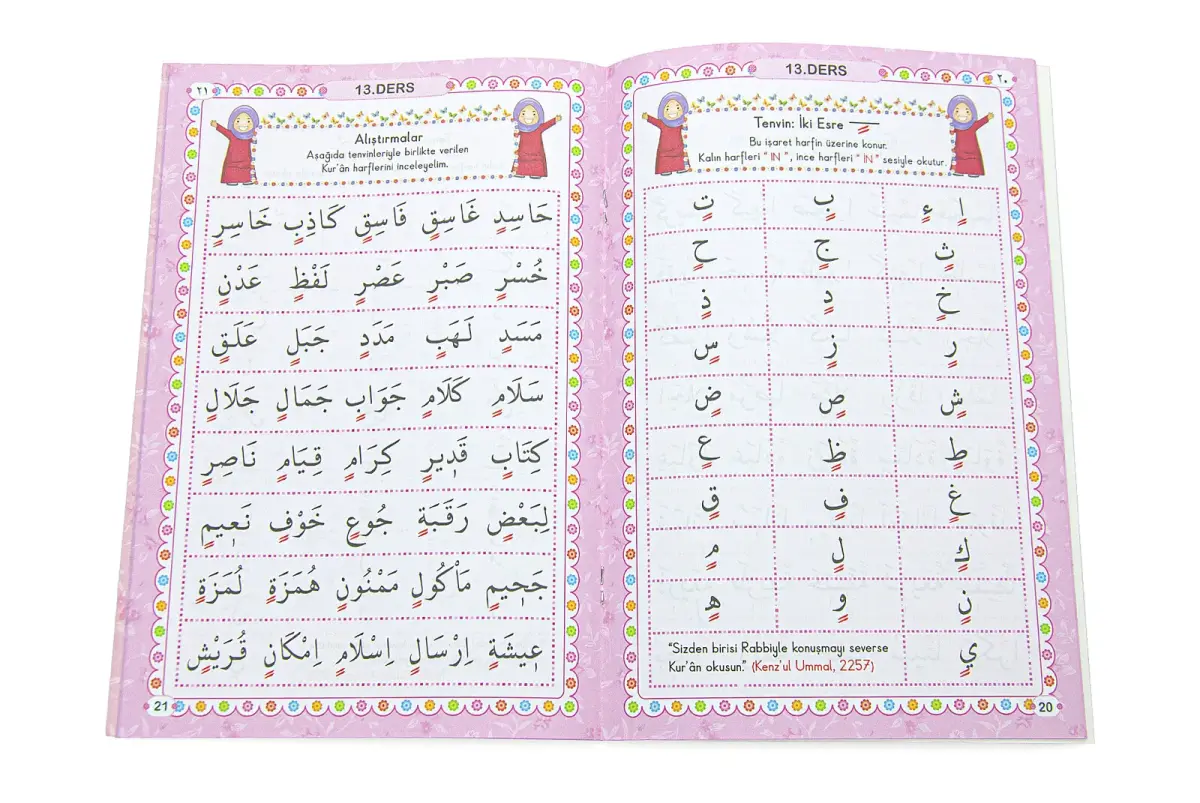 13.DERS
٢٠
Tenvin: İki Esre
Bu işaret harfin üzerine konur.
Kalın harfleri “ IN ”, ince harfleri “ İN ” sesiyle okutur.
اٍ ءٍ بٍ تٍ
ثٍ جٍ حٍ
خٍ دٍ ذٍ
رٍ زٍ سٍ
شٍ صٍ ضٍ
طٍ ظٍ عٍ
غٍ فٍ قٍ
كٍ لٍ مٍ
نٍ وٍ هٍ
يٍ
“Sizden birisi Rabbiyle konuşmayı severse
Kur'ân okusun.” (Kenz'ul Ummal, 2257)
20
13.DERS
٢١
Alıştırmalar
Aşağıda tenvinleriyle birlikte verilen
Kur'ân harflerini inceleyelim.
حَاسِدٍ غَاسِقٍ فَاسِقٍ كَاذِبٍ خَاسِرٍ
خُسْرٍ صَبْرٍ عَصْرٍ لَفْظٍ عَدْنٍ
مَسَدٍ لَهَبٍ مَدَدٍ جَبَلٍ عَلَقٍ
سَلَامٍ كَلَامٍ جَوَابٍ جَمَالٍ جَلَالٍ
كِتَابٍ قَدٖيرٍ كِرَامٍ قِيَامٍ نَاصِرٍ
لِبَعْضٍ رَقَبَةٍ جُوعٍ خَوْفٍ نَعٖيمٍ
جَحٖيمٍ مَاْكُولٍ مَمْنُونٍ هُمَزَةٍ لُمَزَةٍ
عٖيشَةٍ اِرْسَالٍ اِسْلَامٍ اِمْكَانٍ قُرَيْشٍ
21